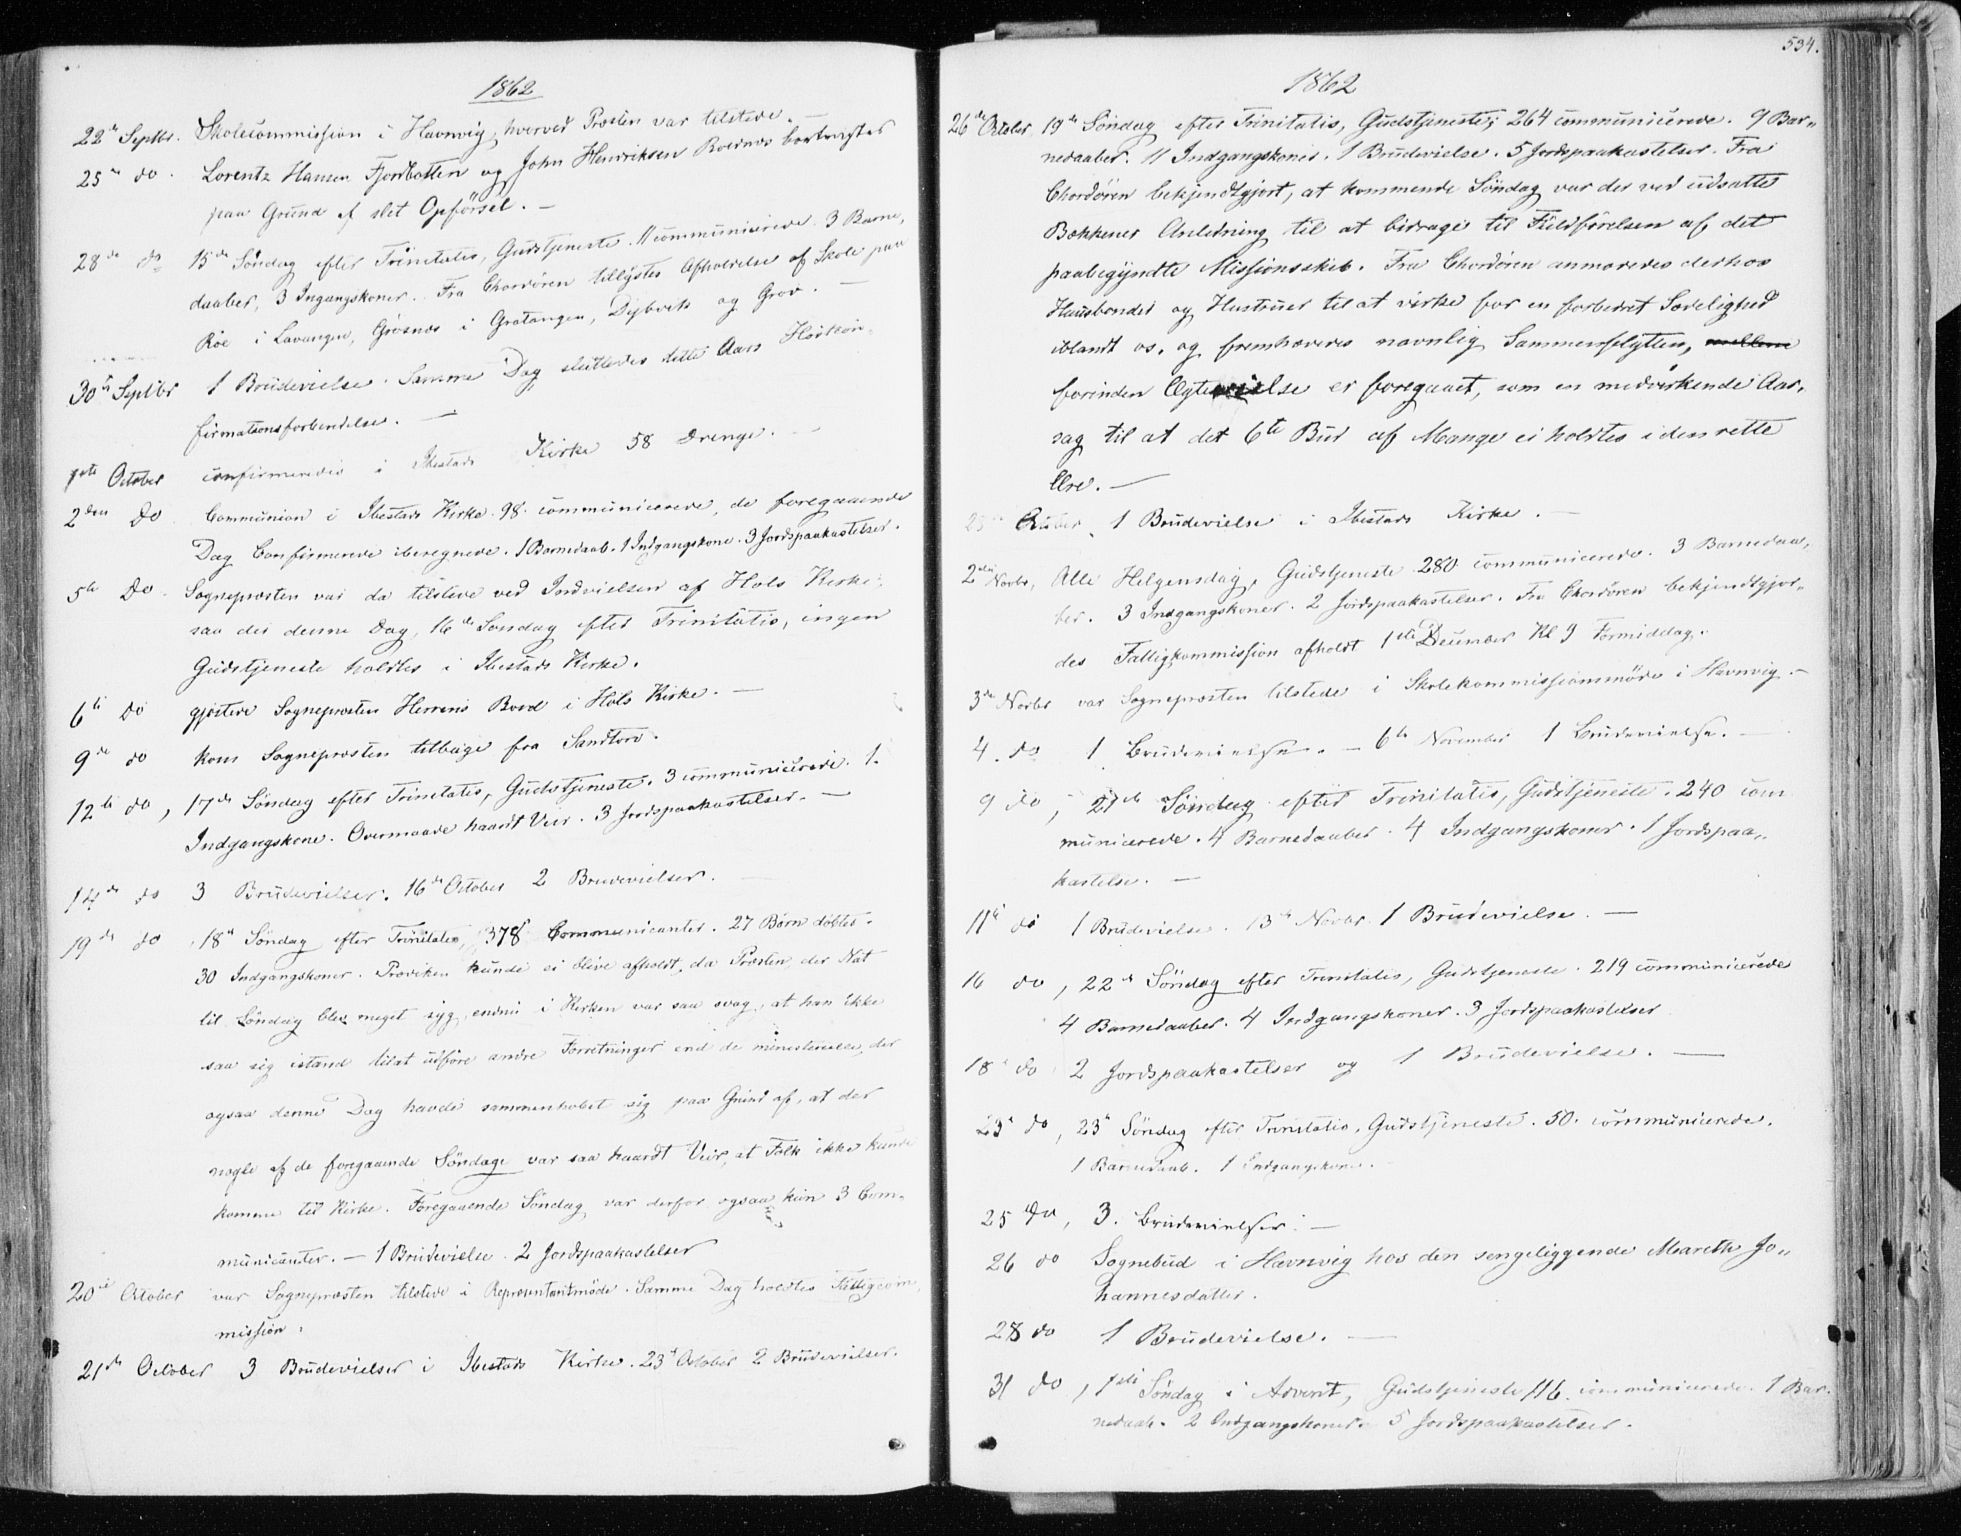 1862
22de Septbr. Skolecommission i Havnvig, hvorved Præsten var tilstede. —
25de do. Lorentz Hansen Fjordbotten og John Henriksen Roednes bortvagtes
paa Grund af slet Opførsel. —
28de do 15de Søndag efter Trinitatis, Gudstjeneste. 11 communicerede. 3 Barne,
daaber, 3 Ingangskoner. Fra Chordøren tillystes Afholdelse af Skole paa
Röe i Lavangen, Grøsnæs i Gratangen, Dybvik og Grov. —
30te Septbr 1 Brudevielse. Samme Dag sluttedes dette Aars Høstcon-
firmationsforberedelse. —
1ste October confirmeredes i Ibestads Kirke 58 Drenge. —
2den Do Communion i Ibestads Kirke. 98 communicerede, de foregaaende
Dag Confirmerede iberegnede. 1 Barnedaab. 1 Indgangskone. 3 Jordspaakastelser.
5te Do. Sognepræsten var da tilstede ved Indvielsen af Hols Kirke,
saa der denne Dag, 16de Søndag efter Trinitatis, ingen
Gudstjeneste holdtes i Ibestads Kirke.
6te Do gjæstede Sognepræsten Herrens Bord i Hols Kirke. —
9de do kom Sognepræsten tilbage fra Sandtorv.
12te do, 17de Søndag efter Trinitatis, Gudstjeneste. 3 communicerede. 1.
Indgangskone. Overmaade haardt Veir. 3 Jordspaakastelser. —
14de do 3 Brudevielser. 16de October 2 Brudevielser. —
19de do 18de Søndag efter Trinitatis, 378 Communicanter. 27 Børn døbtes.
30 Indgangskoner. Prædiken kunde ei blive afholdt, da Præsten, der Nat
til Søndag blev meget syg, endnu i Kirken var saa svag, at han ikke
saa sig istand tilat udføre andre Forretninger end de ministerielle, der
ogsaa denne Dag havde sammenhobet sig paa Grund af, at der
nogle af de foregaaende Søndage var saa haardt Veir, at Folk ikke kunde
komme til Kirke. Foregaaende Søndag var derfor ogsaa kun 3 Com-
municanter. — 1 Brudevielse. 2 Jordspaakastelser
20de October var Sognepræsten tilstede i Repræsentantmøde. Samme Dag holdtes Fattigcom,
mission.
21de October 3 Brudevielser i Ibestads Kirke. 23de October 2 Brudevielser.
534.
1862
26de October, 19de Søndag efter Trinitatis, Gudstjeneste; 264 communicerede. 9 Bar„
nedaaber. 11 Indgangskoner. 1 Brudevielse. 5 Jordspaakastelser. Fra
Chordøren bekjendtgjort, at kommende Søndag var der ved udsatte
Bækkener Anledning til at bidrage til Fuldførelsen af det
paabegyndte Missionsskib. Fra Chordøren anmodedes derhos
Huusbonder og Hustruer til at virke for en forbedret Sædelighed
iblandt os, og fremhævedes navnlig Sammenflytten, mellem
forinden Ægtevielse er foregaaet, som en medvirkende Aar,
sag til at det 6te Bud af Mange ei holdtes i den rette
Ære. —
October, 1 Brudevielse i Ibestads Kirke. —
2den Novbr, Alle Helgensdag, Gudstjeneste 280 communicerede. 3 Barnedaa,
ber. 3 Indgangskoner. 2 Jordspaakastelser. Fra Chordøren bekjendtgjor„
des Fattigkommission afholdt 1ste December Kl 9 Formiddag.
3de Novbr var Sognepræsten tilstede i Skolekommissionsmøde i Havnvig. —
4. do 1 Brudevielse. — 6te November 1 Brudevielse. —
9 do, 21de Søndag efter Trinitatis, Gudstjeneste. 240 com
municerede. 4 Barnedaaber. 4 Indgangskoner. 1 Jordspaa„
kastelse. —
11te do 1 Brudevielse. 13de Novbr. 1 Brudevielse. —
16 do, 22de Søndag efter Trinitatis, Gudstjeneste. 219 communicerede
4 Barnedaaber. 4 Indgangskoner. 3 Jordspaakastelser
18de do 2 Jordspaakastelser og 1 Brudevielse. —
23de do, 23de Søndag efter Trinitatis, Gudstjeneste. 50. communicerede.
1 Barnedaab. 1 Indgangskone. —
25 do, 3. Brudevielser. —
26 do Sognebud i Havnvig hos den sengeliggende Mareth Jo„
hannesdatter.
28 do 1 Brudevielse. —
31 do, 1ste Søndag i Advent, Gudstjeneste 116 communicerede. 1 Bar.
nedaab. 2 Indgangskoner. 5 Jordspaakastelser.